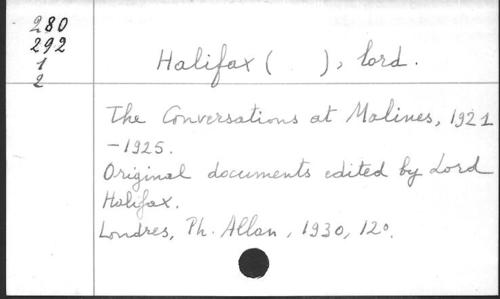 280
292
1
2
Halifax (      ), lord.
The Conversations at Malines, 1921
-1925.
Original documents edited by Lord
Halifax.
Londres, Ph. Allan, 1930, 12°.